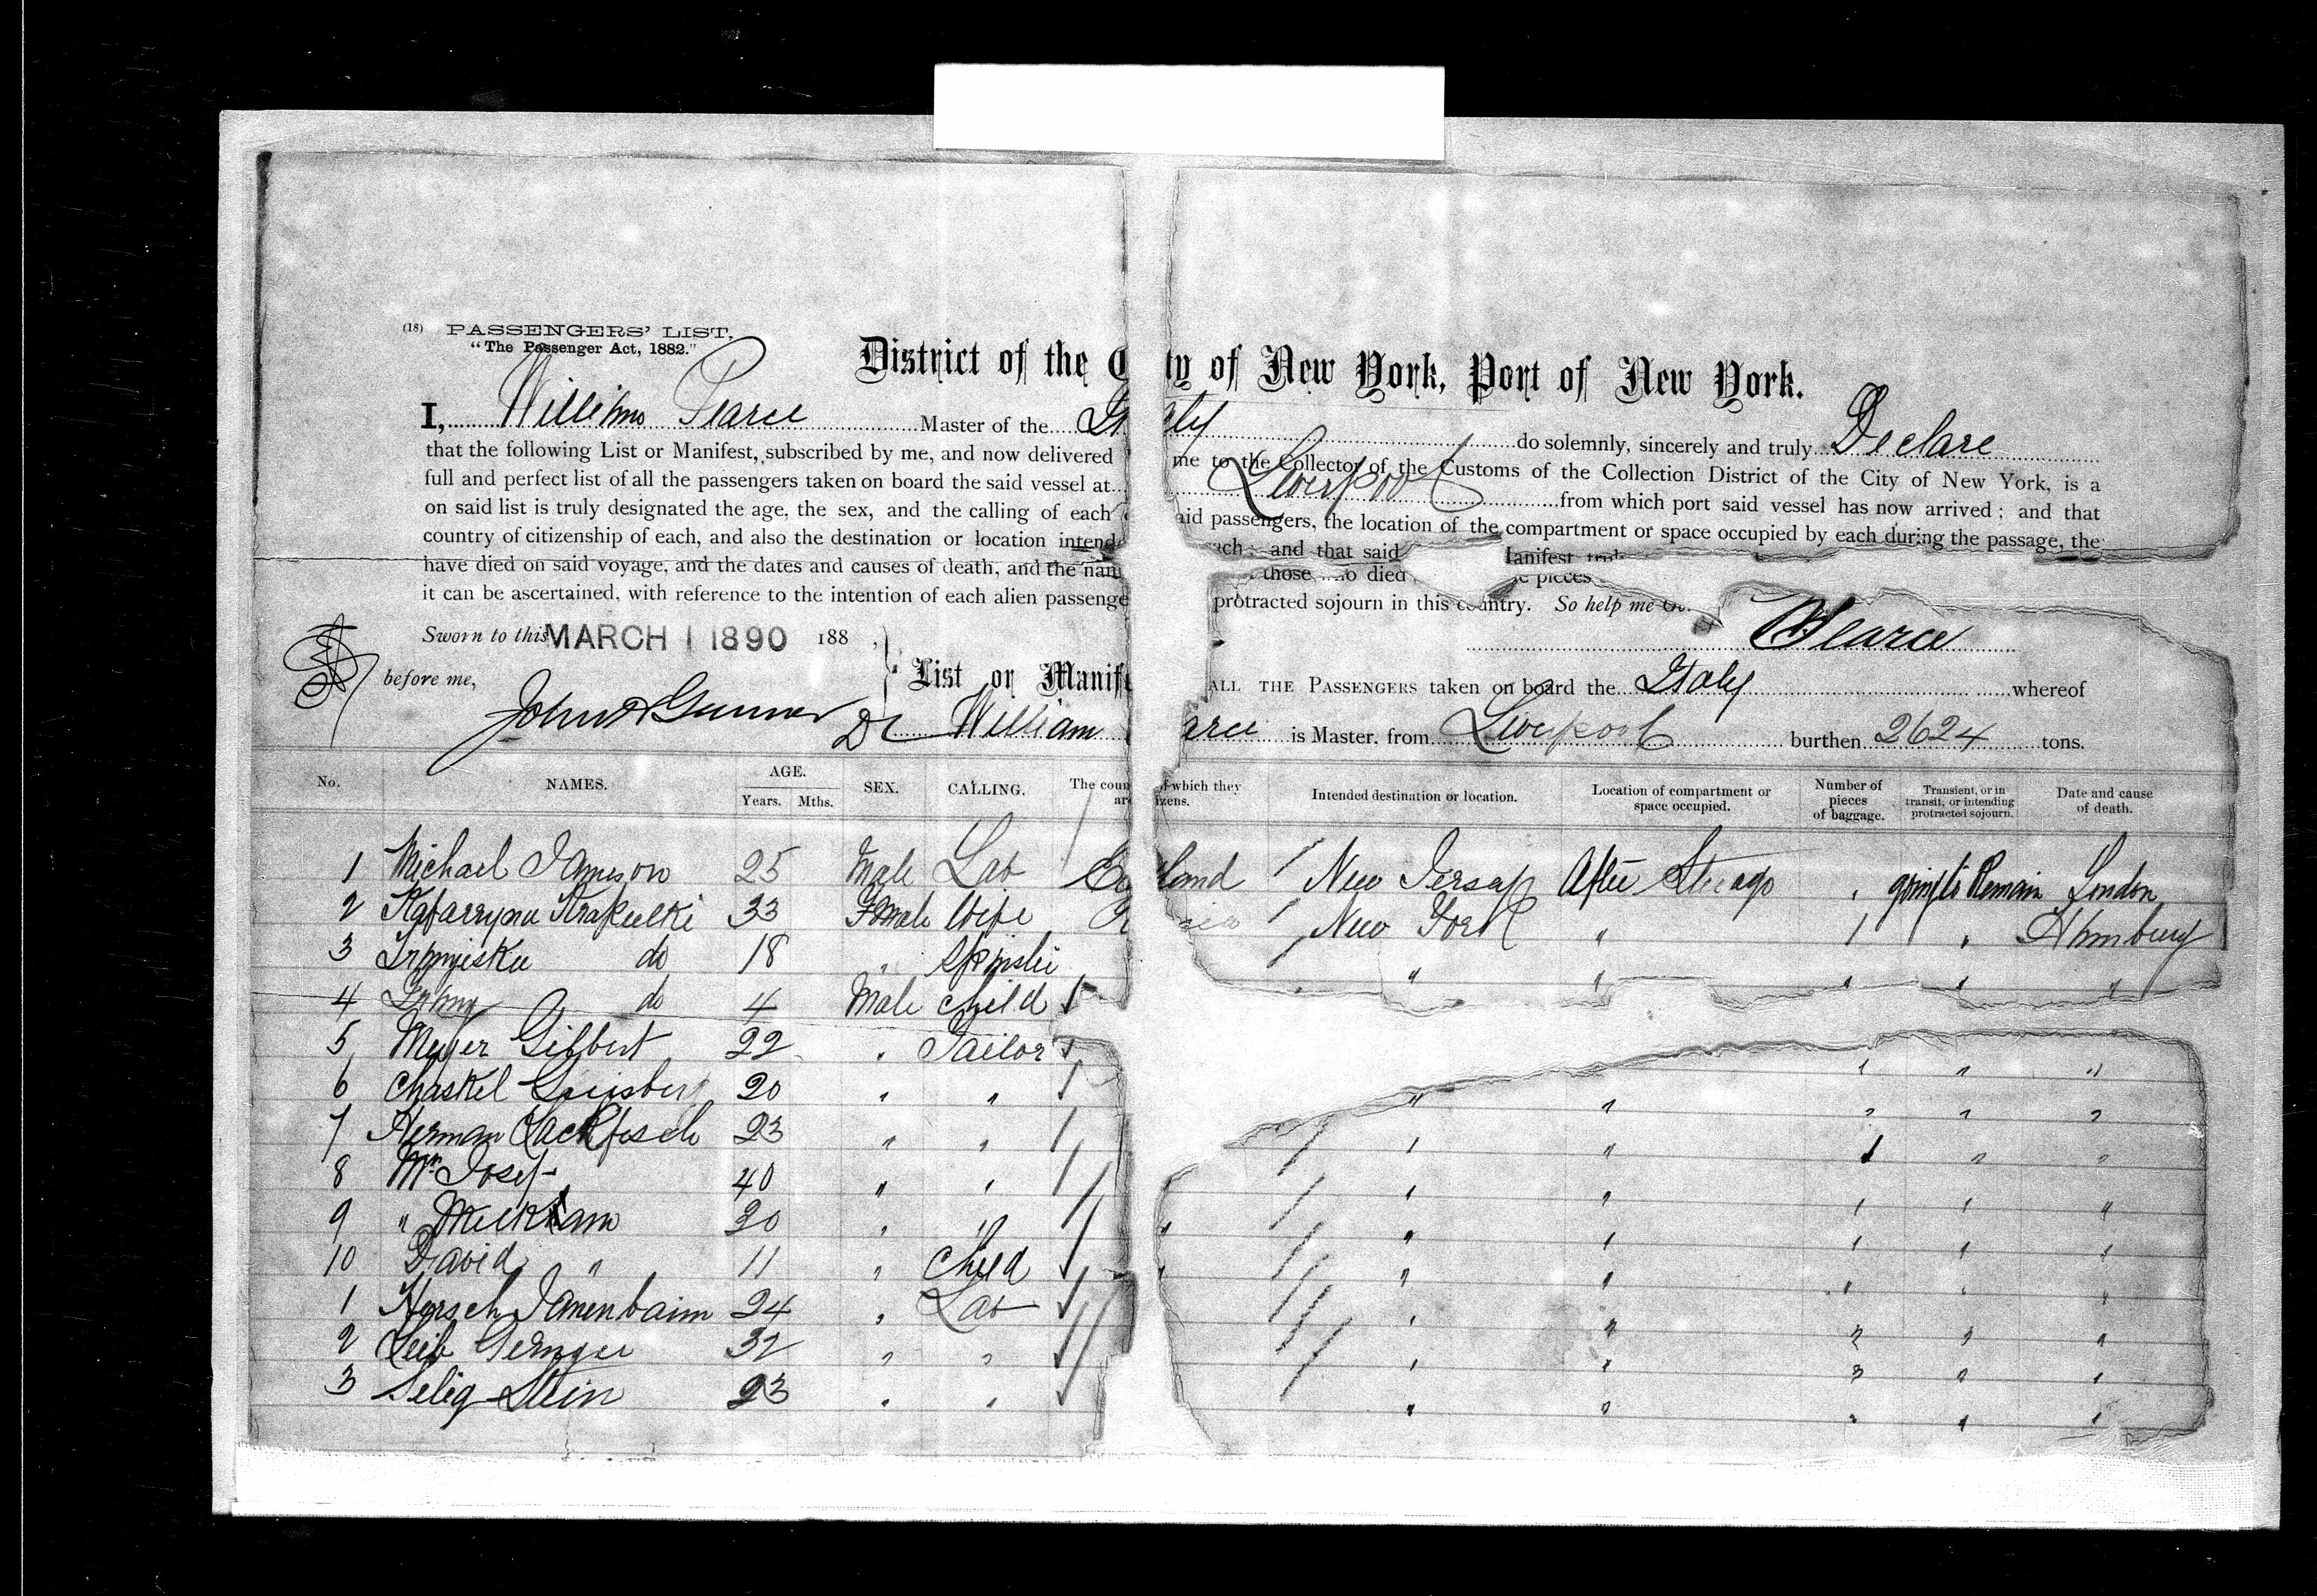 (18) PASSENGERS' LIST.
"The Passenger Act, 1882."
District of the City of New York, Port of New York.
I, William Pearce Master of the Italy do solemnly, sincerely and truly Declare
that the following List or Manifest, subscribed by me, and now delivered me to the Collector of the Customs of the Collection District of the City of New York, is a
full and perfect list of all the passengers taken on board the said vessel at Liverpool from which port said vessel has now arrived; and that
on said list is truly designated the age, the sex, and the calling of each aid passengers, the location of the compartment or space occupied by each during the passage, the
country of citizenship of each, and also the destination or location intende ach; and that said
have died on said voyage, and the dates and causes of death, and the nam those died pieces
it can be ascertained, with reference to the intention of each alien passenge protracted sojourn in this country. So help me
Sworn to this MARCH 1 1890 188 , Pearce
before me, List or Manif ALL THE PASSENGERS taken on board the Italy whereof
William arce is Master, from Liverpool burthen 2624 tons.
No. NAMES. AGE. Years. Mths. SEX. CALLING. The coun of which they ar izens. Intended destination or location. Location of compartment or space occupied. Number of pieces of baggage. Transient, or in transit, or intending protracted sojourn. Date and cause of death.
1 Michael Jameson 25 Male Lab England New Jersay After Steeage going to Remain London
2 33 Fmale Wife New York " 1 " Hamburg
3 do 18 " " " " " "
4 do 4 Male Child
5 Meyer Gilbert 22 " Tailor 1 " "
6 Chaskel Ginsberg 20 " " " " " " "
7 Herman Lackfisch 23 " " " " 1 " "
8 Mr Josef 40 " " " " " " "
9 " 20 " " " " " " " "
10 David " 11 " Child " " " " " "
1 Hersch Tanenbaum 24 " Lab " " 2 " "
2 Leib 32 " " " " 3 " "
3 Selig Stein 23 " " " " " " "